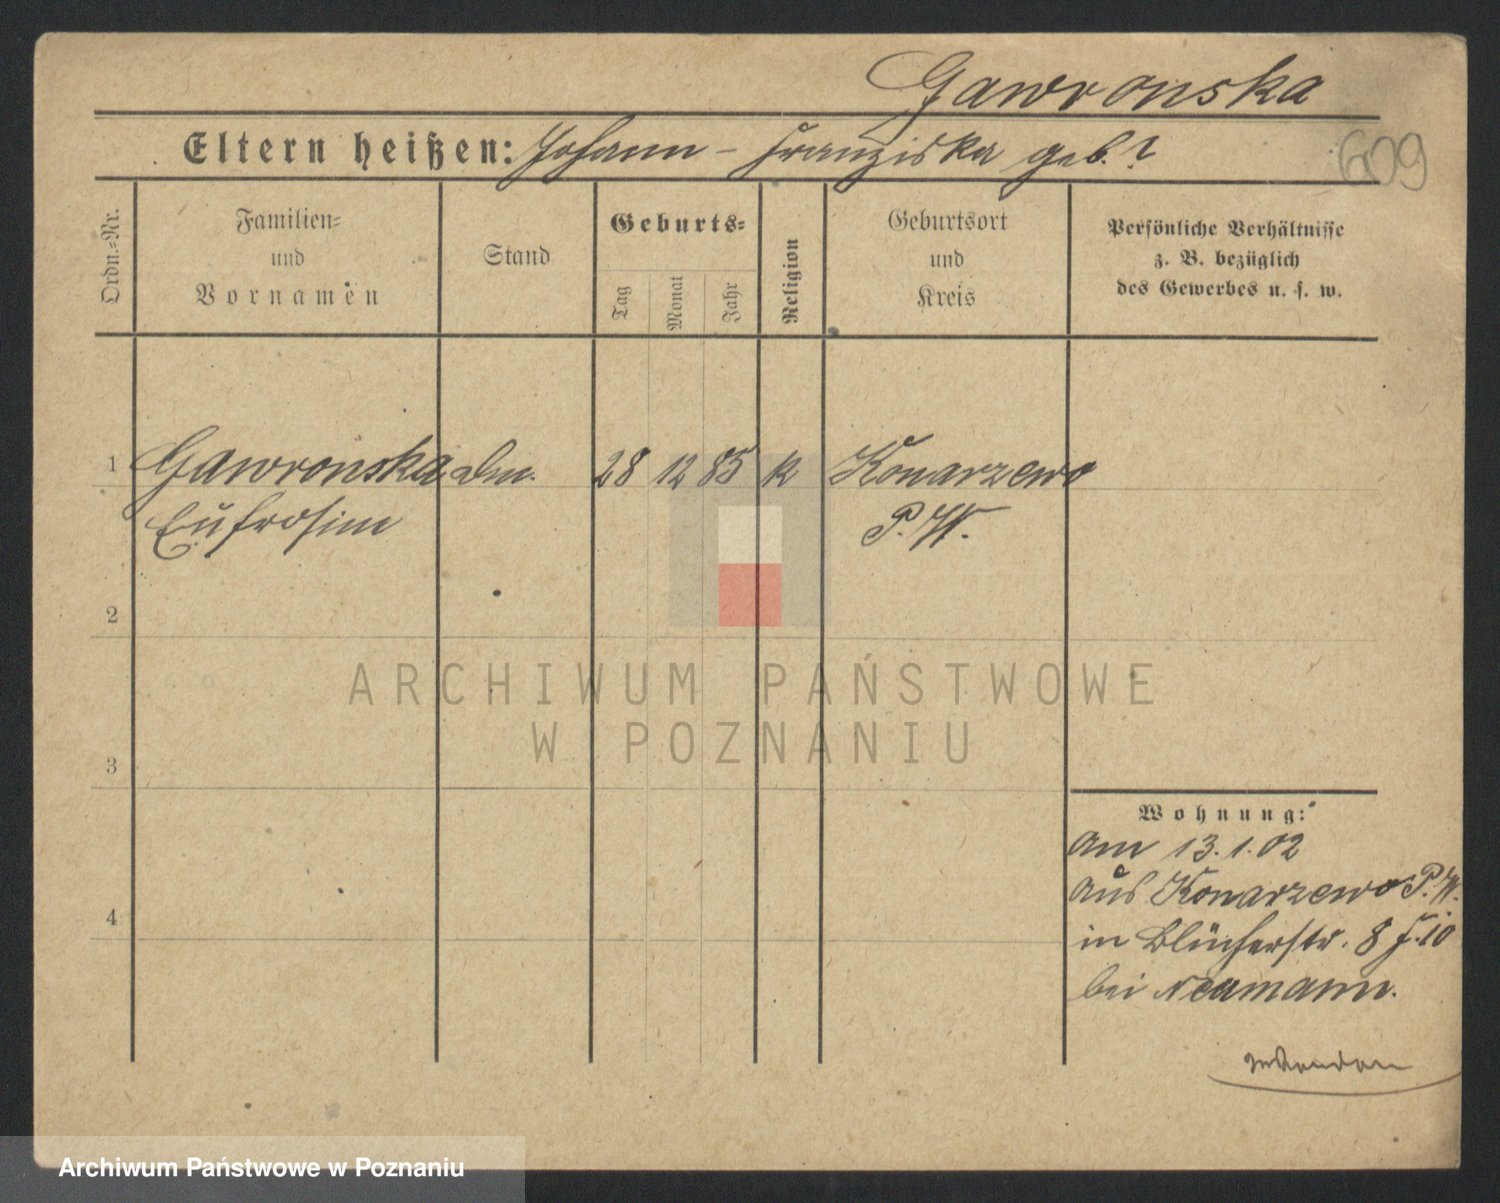 Gawronska
Eltern heißen: Johann - Franziska geb. ?
609
Ordn.=Nr.
Familien=
und
Vornamen
Stand
Geburts=
Tag
Monat
Jahr
Religion
Geburtsort
und
Kreis
Persönliche Verhältnisse
z. B. bezüglich
des Gewerbes u. s. w.
1 Gawronska Dm. 28 12 85 k Konarzewo
Eufrosine P. W.
2
3
4
ARCHIWUM PAŃSTWOWE
W POZNANIU
Wohnung:
Am 13. 1. 02
aus Konarzewo P. W.
in Blücherstr. 8 f. 10
bei Neumann.
Archiwum Państwowe w Poznaniu